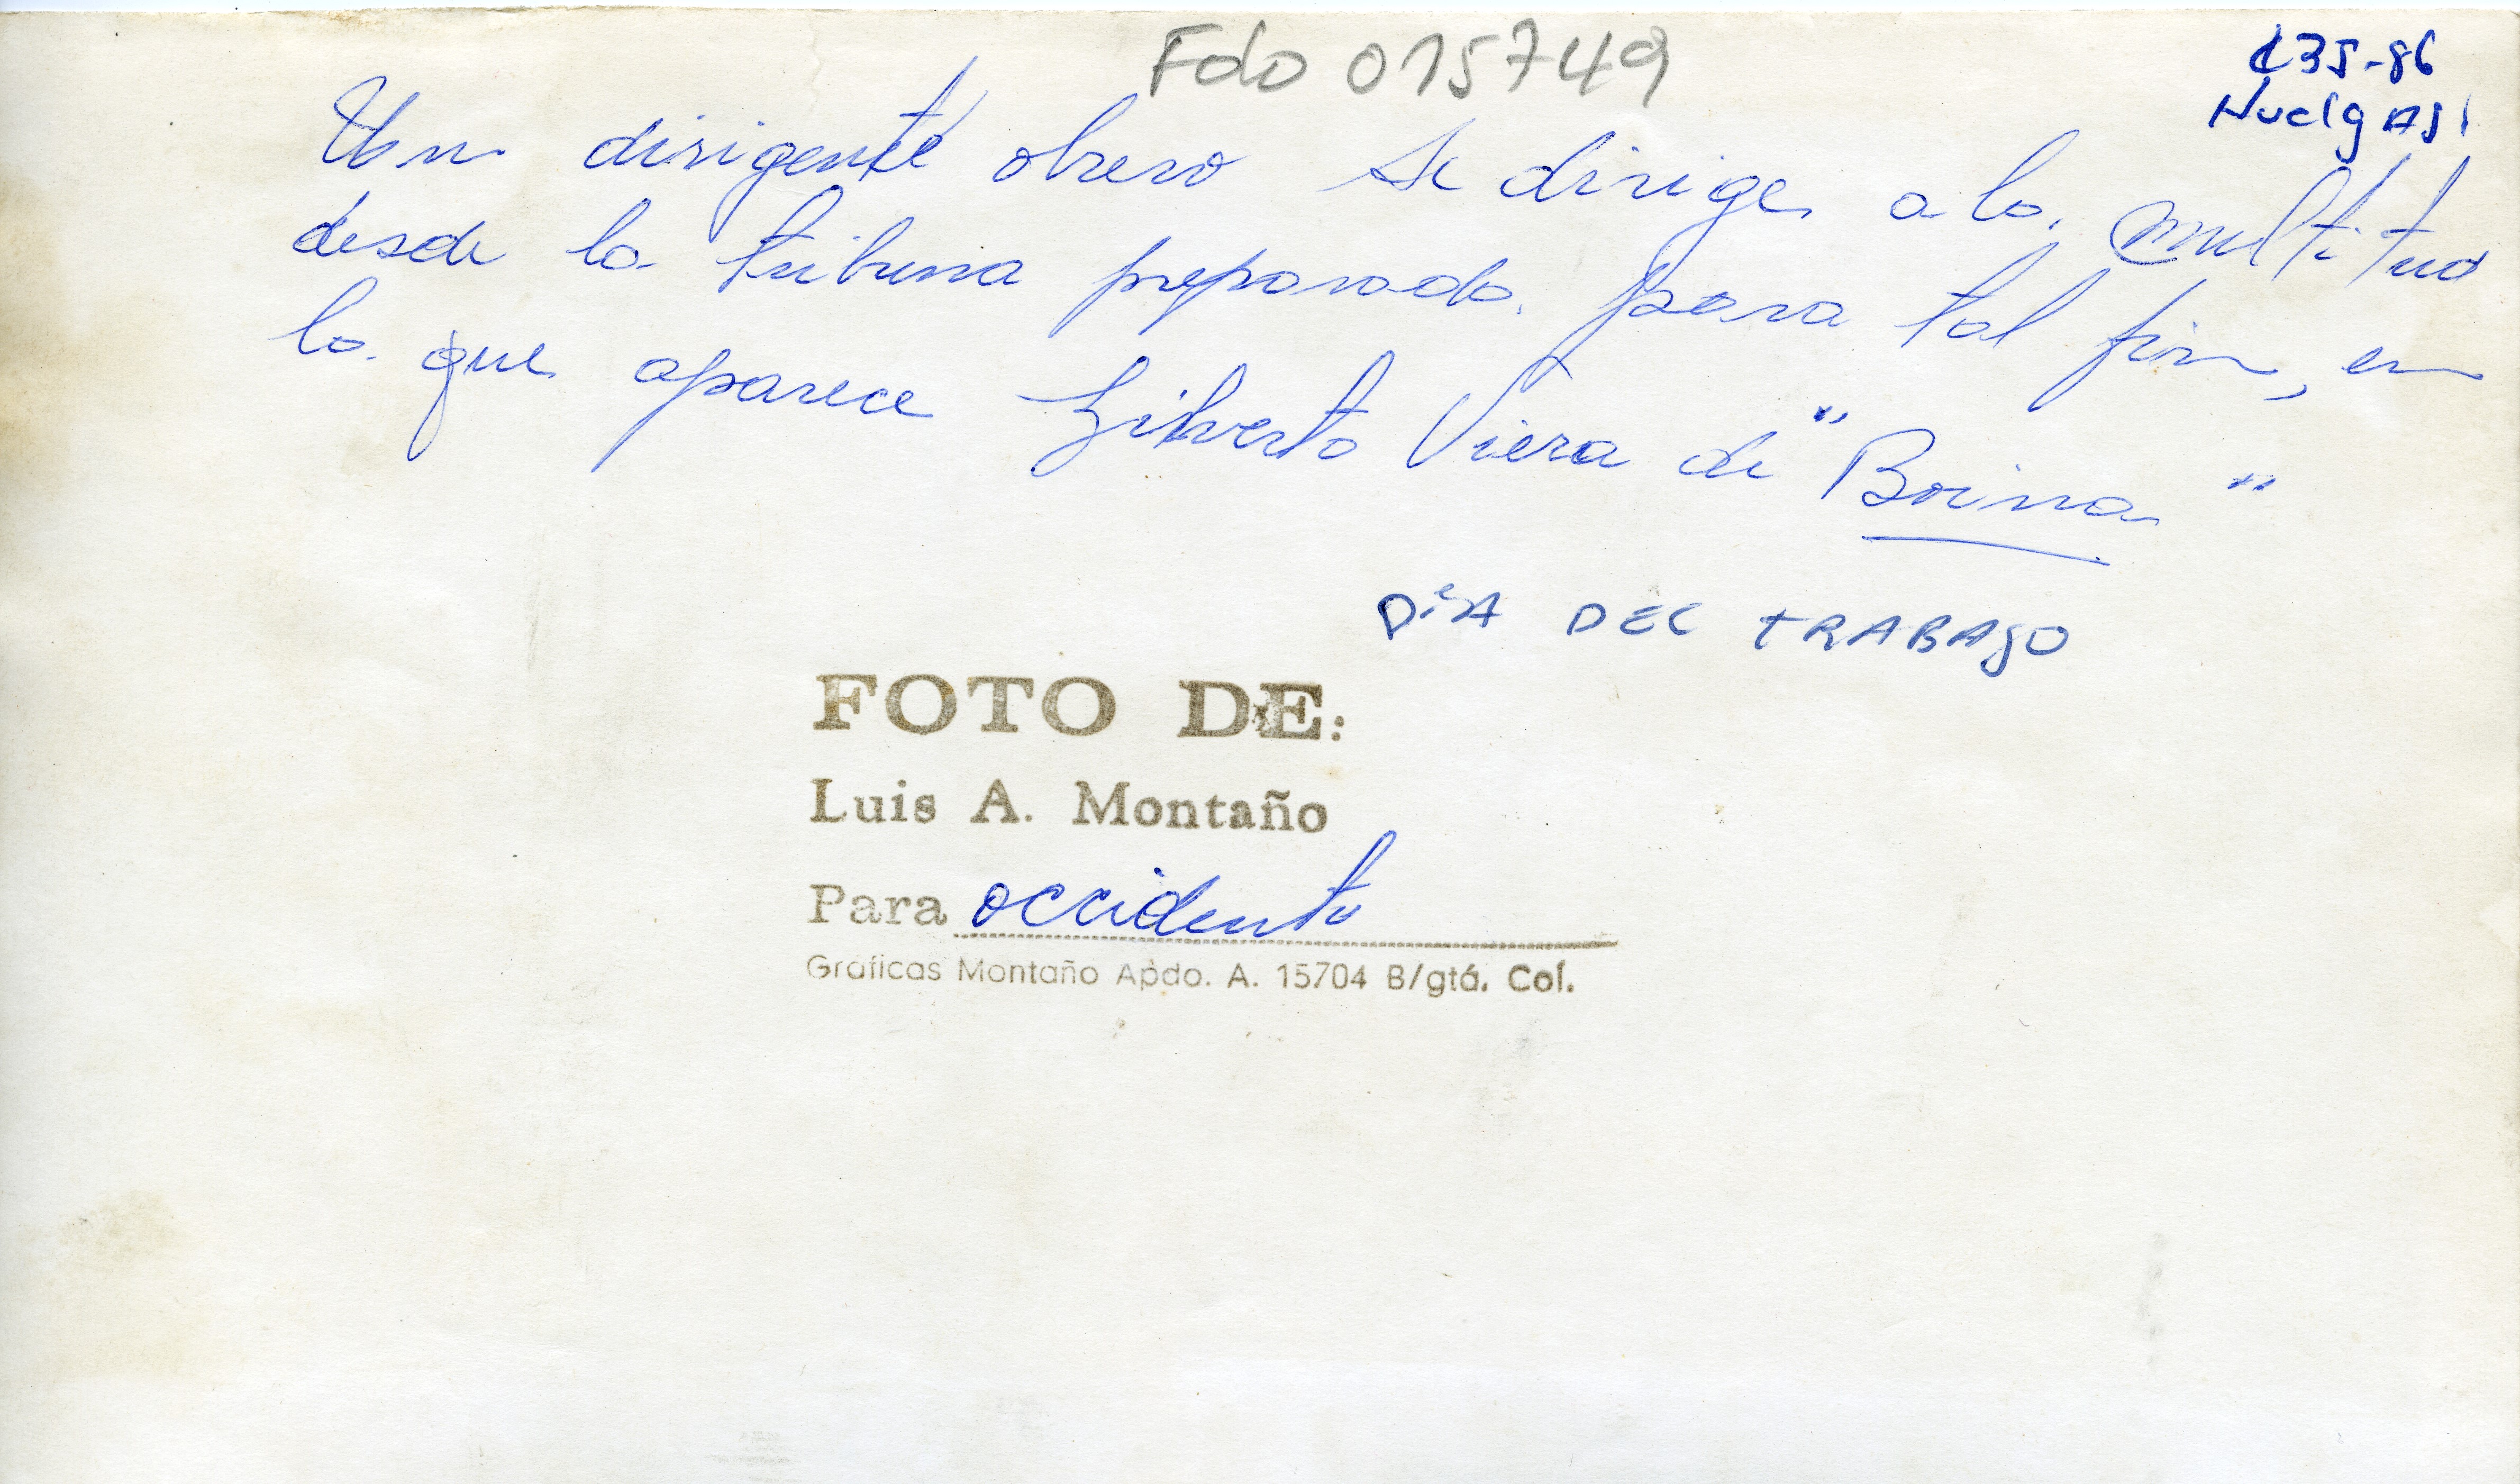 Fdo 015749
C35-86
Huelgas 1
Un dirigente obrero se dirige a la multitud
desde la tribuna preparada para tal fin, en
la que aparece Gilberto Viera de "Boina"
DÍA DEL TRABAJO
FOTO DE:
Luis A. Montaño
Para occidente
Graficas Montaño Apdo. A. 15704 B/gtá. Col.